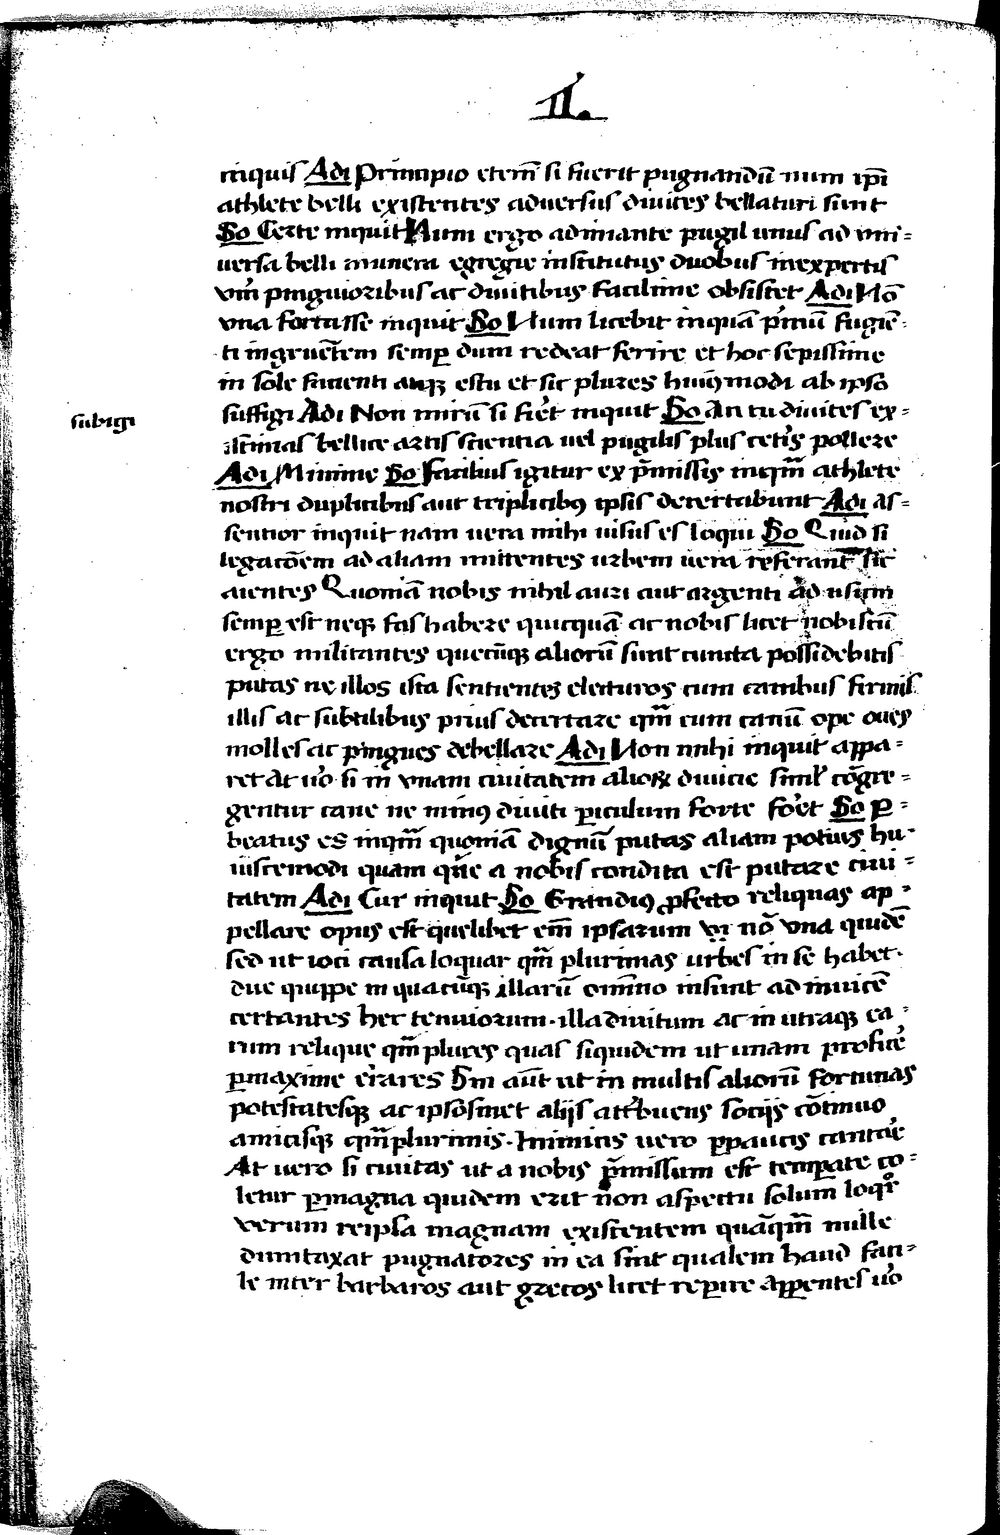 II.
inquis Adi Principio etem̄ si fuerit pugnandū num ip̄i
athlete belli existentes adversus divites bellaturi sunt
So Certe inquit Num ergo adimante pugil unus ad uni=
versa belli munera egregie institutus duobus inexpertis
vm̄ pinguioribus ac divitibus facilime obsistet Adi Nō
vna fortasse inquit So Num licebit inquā p̄mū fugiē=
ti ingruētem semp dum redeat ferire et hoc sepissime
in sole faventi atqꝫ estu et sic plures huiꝰmodi ab ipso
suffigi Adi Non mirū si fiet inquit So An tu divites ex=
istimas bellice artis scientia uel pugilis plus cetis pollere
subigi
Adi Minime So Facilius igitur ex p̄missis inqm̄ athlete
nostri duplicibus aut triplicibꝰ ipsis decertabunt Adi as=
sentior inquit nam uera mihi uisus es loqui So Quid si
legacōem ad aliam mittentes urbem uera referant sic
aientes Quoniā nobis nihil auri aut argenti ad usum
semp est neqꝫ fas habere quicquā ac nobis licet nobiscū
ergo militantes quecūqꝫ aliorū sunt cuncta possidebitis
putas ne illos ista sentientes electuros cum canibus firmis
illis ac subtilibus prius decertare qm̄ cum canū ope oues
molles ac pingues debellare Adi Non mihi inquit appa=
ret At uo si in vnam ciuitatem alioꝝ diuicie simul cōgre=
gentur caue ne minꝰ diuiti piculum forte foret So p=
beatus es inqm̄ quoniā dignū putas aliam potius hu=
iuscemodi quam que a nobis condita est putare ciui=
tatem Adi Cur inquit So Grandiꝰ pfecto reliquas ap=
pellare opus est quelibet em̄ ipsarum vi nō vna quidē
sed ut ioci causa loquar qm̄ plurimas urbes in se habet.
due quippe in quacūqꝫ illarū omīno insunt ad inuicē
certantes hec tenuiorum. illa diuitum ac in utraqꝫ ea=
rum relique qm̄ plures quas siquidem ut unam profice
pmaxime errares Sin aūt ut in multis aliorū fortunas
potestatesqꝫ ac ipsosmet alijs attibuens socijs cōtinuo
amicisqꝫ qm̄ plurimis. Inimicis uero ppaucis
At uero si ciuitas ut a nobis p̄missum est tempate co=
letur pmagna quidem erit non aspectu solum loqr
verum reipsa magnam existentem quāqm̄ mille
dumtaxat pugnatores in ea sint qualem haud faci=
le inter barbaros aut grecos licet repire appentes uo